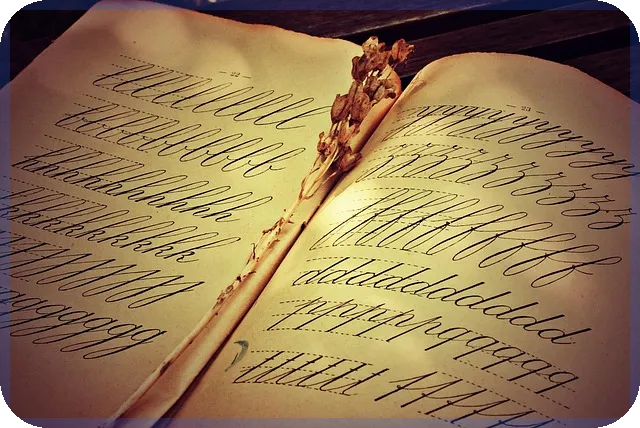 — 22 —
lllllllllll
lllbbbbbbbb
hhhhhhhhhhhh
hhkkkkkkkk
jjjjjjjjj
ggggggggg
— 23 —
yyyyyyyyyyyy
zzzzzzzzzzzz
fffffffffff
ddddddddddddd
ppppppqqqqqq
tttttttt